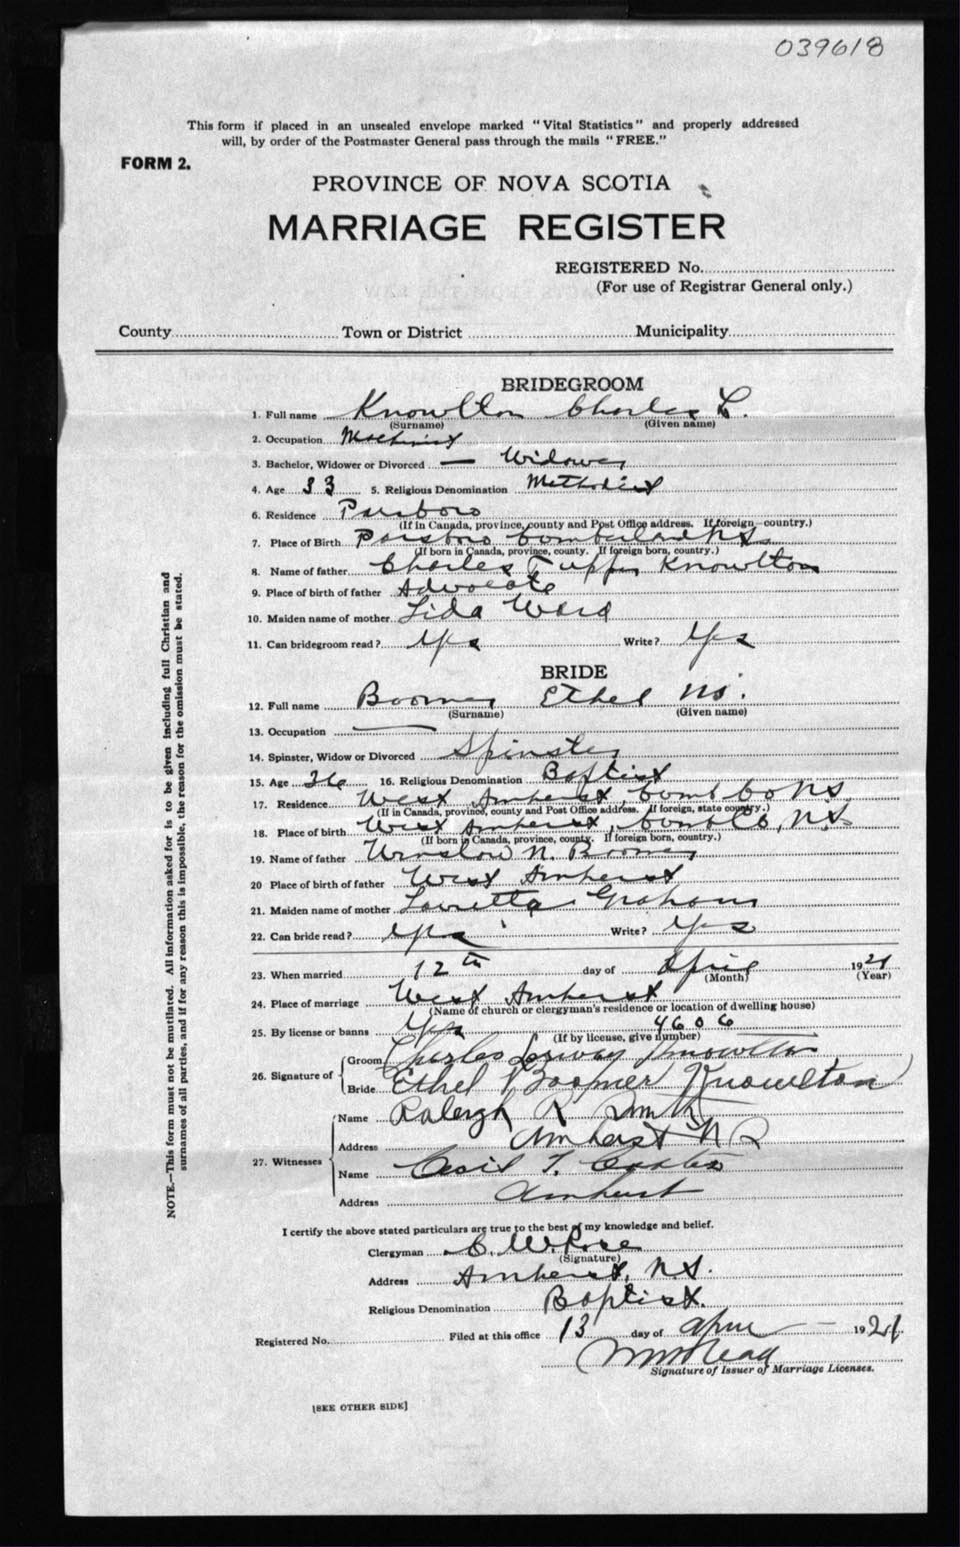 039618
This form if placed in an unsealed envelope marked "Vital Statistics" and properly addressed
will, by order of the Postmaster General pass through the mails "FREE."
FORM 2.
PROVINCE OF NOVA SCOTIA
MARRIAGE REGISTER
REGISTERED No.
(For use of Registrar General only.)
County Town or District Municipality
BRIDEGROOM
1. Full name Knowlton Charles L.
(Surname) (Given name)
2. Occupation Machinist
3. Bachelor, Widower or Divorced — Widower
4. Age 33 5. Religious Denomination Methodist
6. Residence Parsboro
(If in Canada, province, county and Post Office address. If foreign—country.)
7. Place of Birth Parsboro Cumberland N.S.
(If born in Canada, province, county. If foreign born, country.)
8. Name of father Charles Tupper Knowlton
9. Place of birth of father Advocate
10. Maiden name of mother Lida Ward
11. Can bridegroom read? Yes Write? Yes
BRIDE
12. Full name Boomer Ethel M.
(Surname) (Given name)
13. Occupation —
14. Spinster, Widow or Divorced Spinster
15. Age 26 16. Religious Denomination Baptist
17. Residence West Amherst, Cumb Co NS
(If in Canada, province, county and Post Office address. If foreign, state country.)
18. Place of birth West Amherst, Cumb Co, N.S.
(If born in Canada, province, county. If foreign born, country.)
19. Name of father Winslow N. Boomer
20 Place of birth of father West Amherst
21. Maiden name of mother Loretta Graham
22. Can bride read? Yes Write? Yes
23. When married 12th day of April 1921
(Month) (Year)
24. Place of marriage West Amherst
(Name of church or clergyman's residence or location of dwelling house)
25. By license or banns Yes 4606
(If by license, give number)
26. Signature of Groom Charles Knowlton
Bride Ethel Boomer Knowlton
27. Witnesses Name Raleigh R Smith
Address Amherst N S
Name Cecil T. Coates
Address Amherst
I certify the above stated particulars are true to the best of my knowledge and belief.
Clergyman C. W. Rose
(Signature)
Address Amherst, N.S.
Religious Denomination Baptist.
Registered No. Filed at this office 13 day of April — 1921.
Signature of Issuer of Marriage Licenses.
[SEE OTHER SIDE]
NOTE.—This form must not be mutilated. All information asked for is to be given including full Christian and
surnames of all parties, and if for any reason this is impossible, the reason for the omission must be stated.